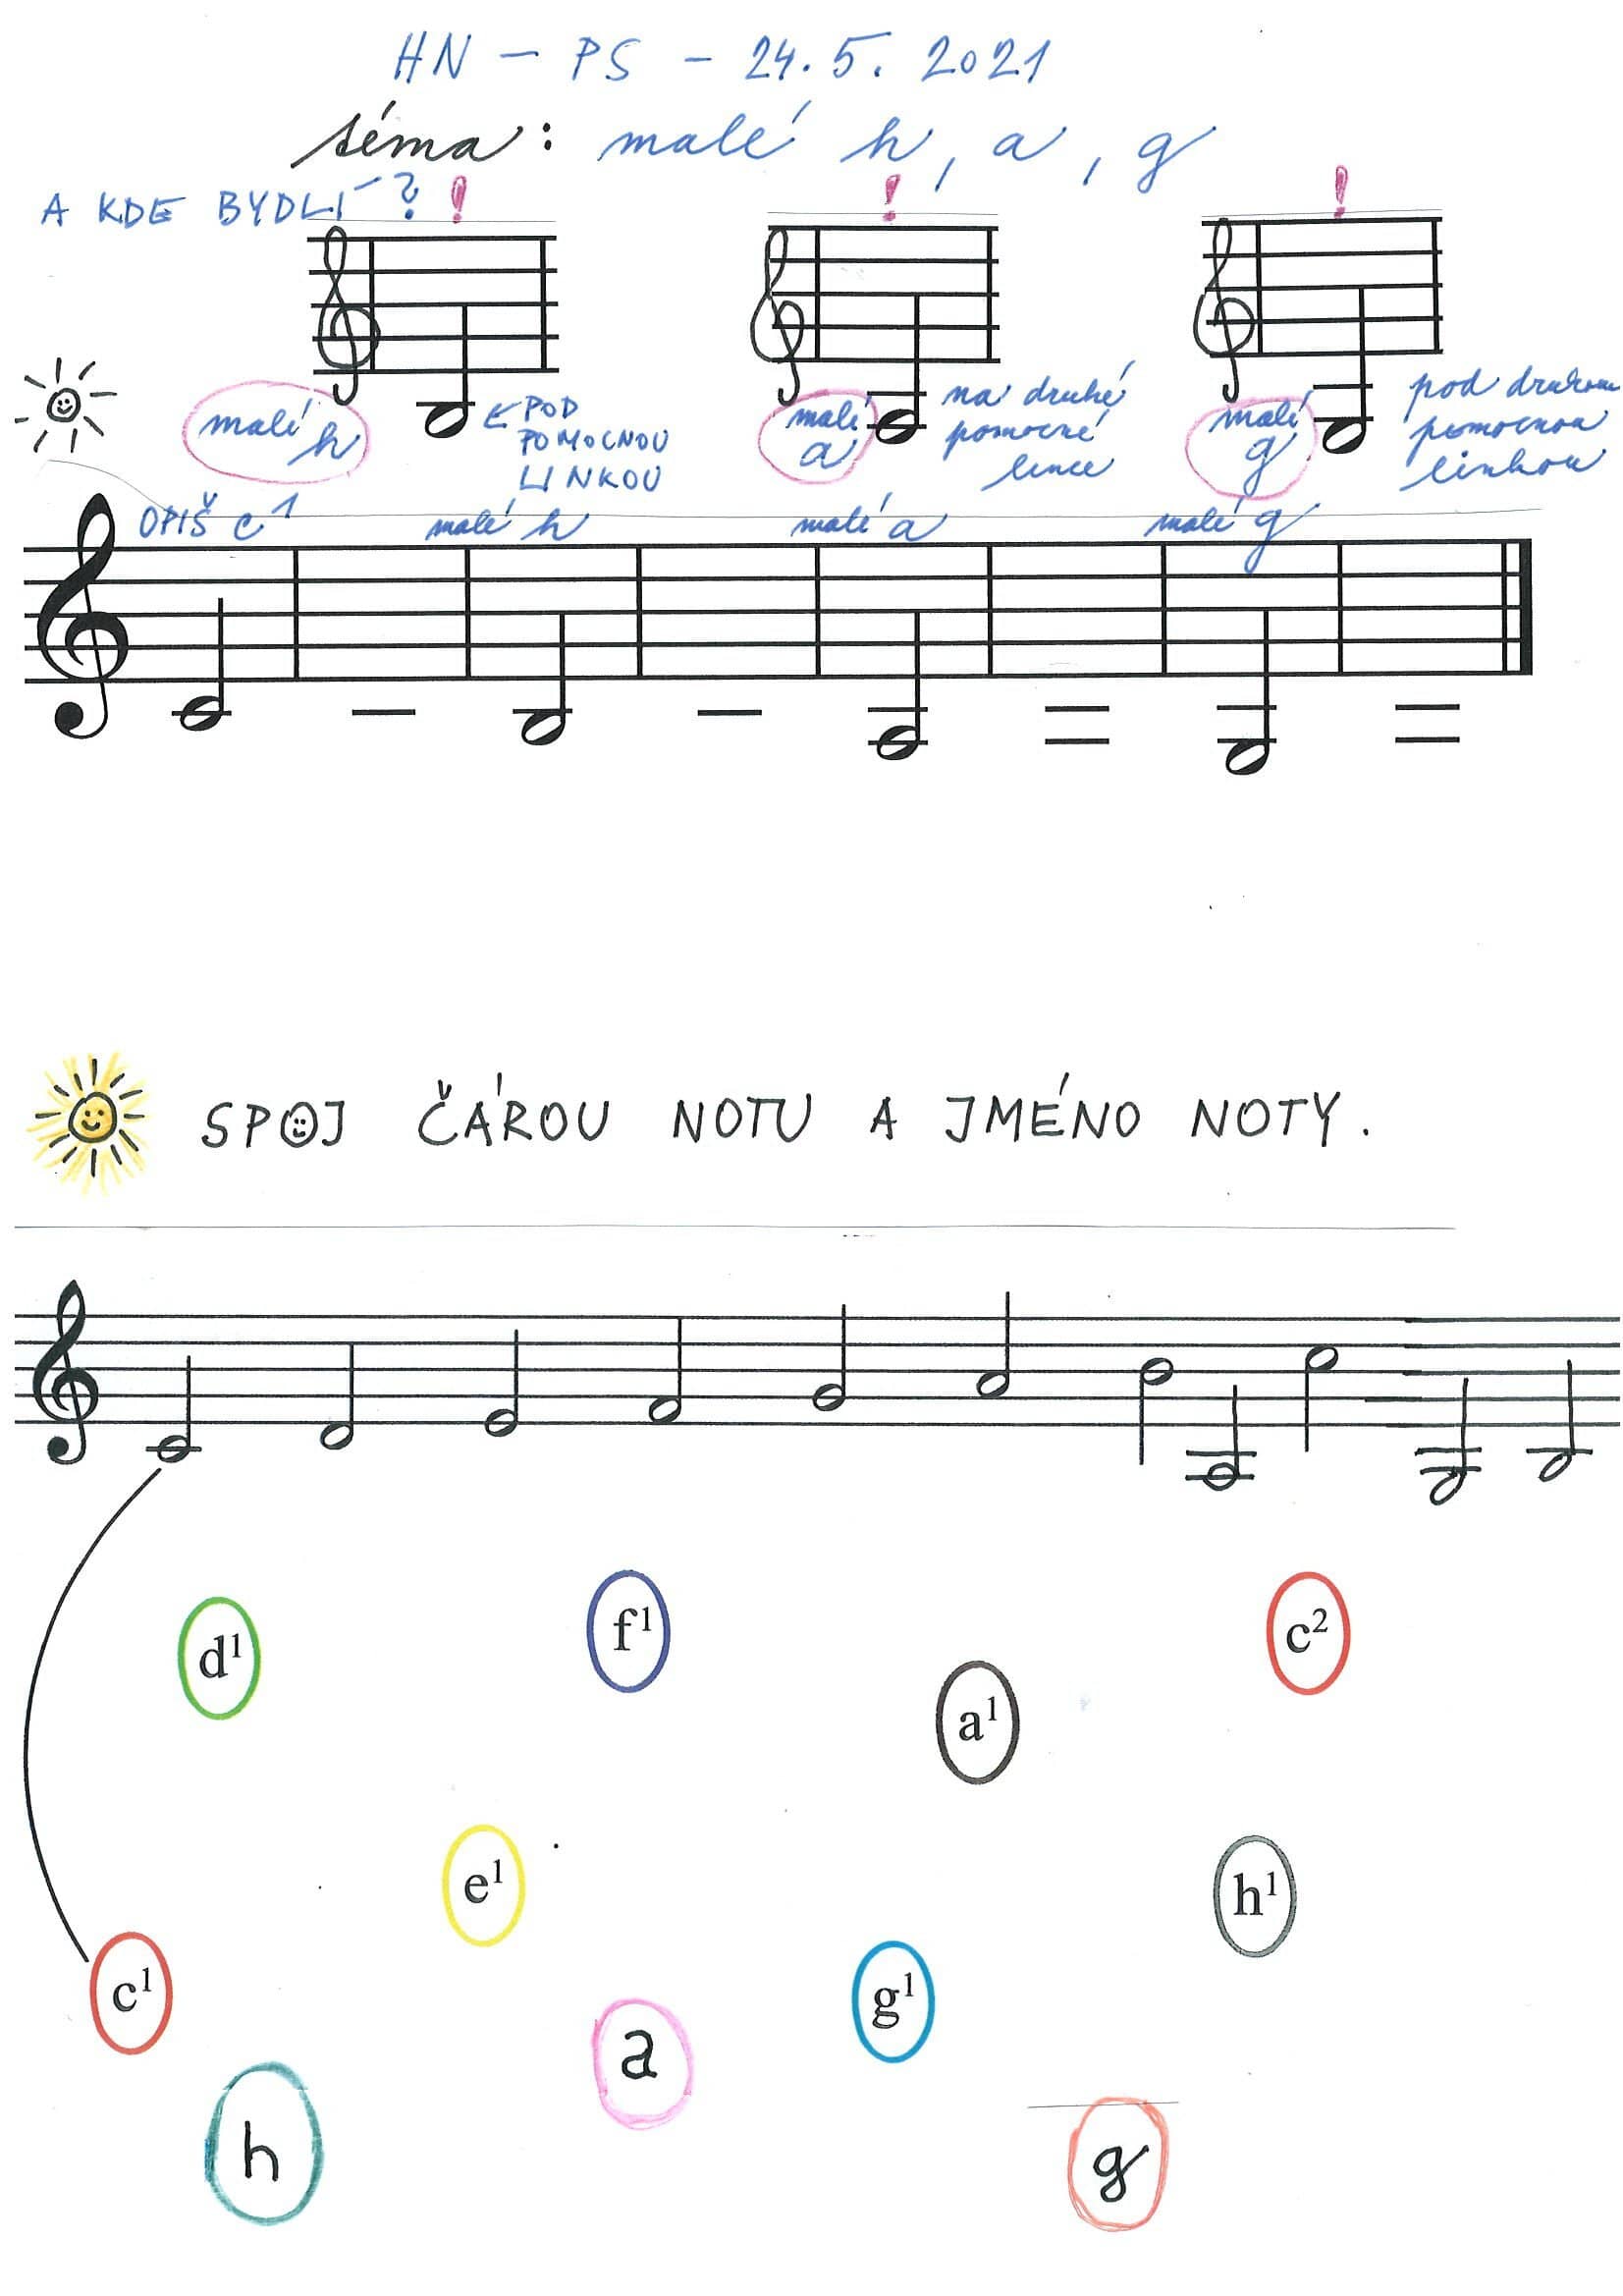 HN – PS – 24. 5. 2021
téma: malé h, a, g
A KDE BYDLÍ ? ! ! !
malé h
← POD POMOCNOU LINKOU
malé a
na druhé pomocné lince
malé g
pod druhou pomocnou linkou
OPIŠ c¹ malé h malé a malé g
SPOJ ČÁROU NOTU A JMÉNO NOTY.
d¹ f¹ c²
a¹
e¹ h¹
c¹ g¹
a
h g